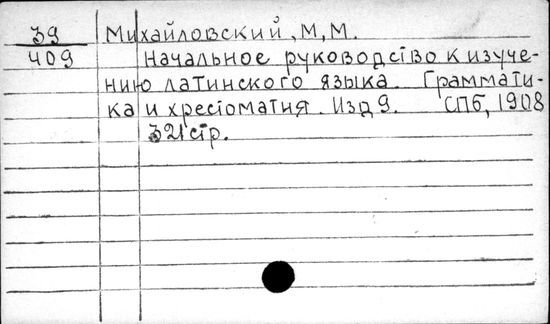 39 Михайловский, М, М.
409 Начальное руководство к изуче-
нию латинского языка. Граммати-
ка и хрестоматия. Изд 9. СПб, 1908
321 стр.